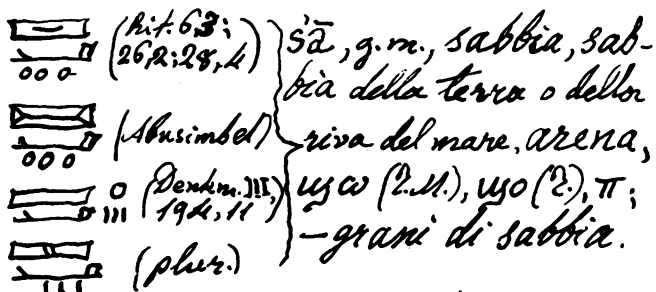 (Rit. 6,3;
26,2; 28,4)
(Abusimbel)
(Denkm. III,
194, 11)
(plur.)
s̓ā, g.m., sabbia, sab-
bia della terra o della
riva del mare, arena,
ϣⲱ (T.M.), ϣⲟ (T.), ⲡ;
– grani di sabbia.